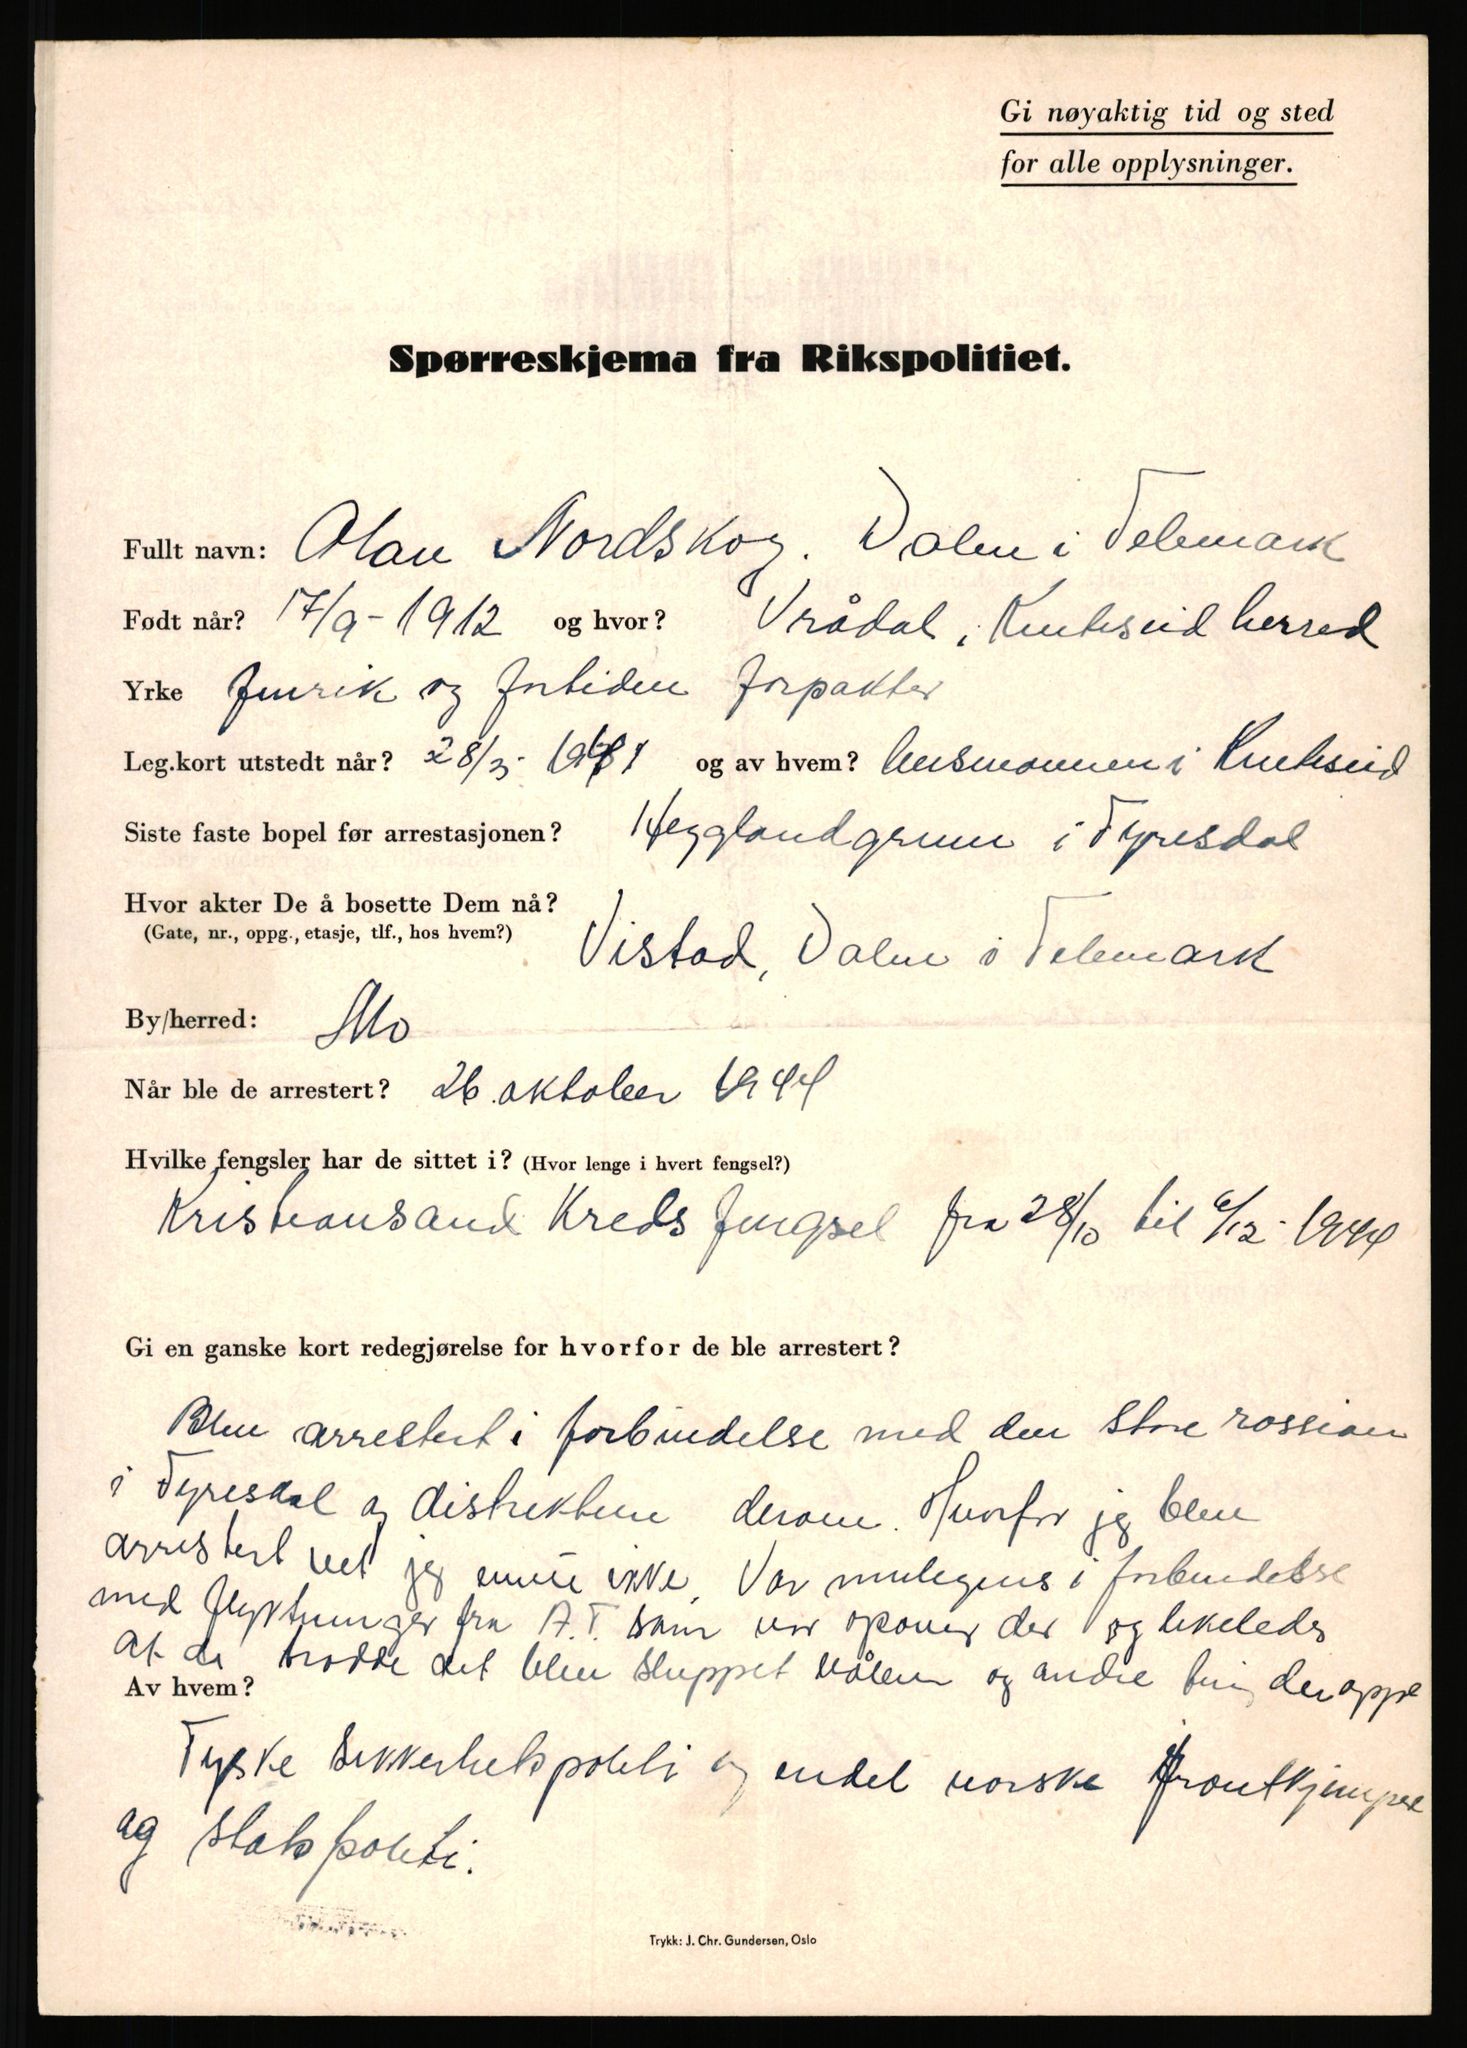 Gi nøyaktig tid og sted
for alle opplysninger.
Spørreskjema fra Rikspolitiet.
Fullt navn: Olav Nordskog. Dalen i Telemark
Født når? 17/9-1912 og hvor? Vrådal, Kviteseid herred
Yrke fenrik og fortiden forpakter
Leg.kort utstedt når? 28/3- 1941 og av hvem? lensmannen i Kviteseid
Siste faste bopel før arrestasjonen? Hegglandgrenn i Tyresdal
Hvor akter De å bosette Dem nå?
(Gate, nr., oppg., etasje, tlf., hos hvem?) Vistad, Dalen i Telemark
By/herred: Mo
Når ble de arrestert? 26. oktober 1944
Hvilke fengsler har de sittet i? (Hvor lenge i hvert fengsel?)
Kristiansand Kreds fengsel fra 28/10 til 6/12-1944
Gi en ganske kort redegjørelse for hvorfor de ble arrestert?
Blev arrestert i forbindelse med den store rassian
i Tyresdal og distriktene derom. Hvorfor jeg blev
arrestert vet jeg ennu ikke. Var muligens i forbindelse
med flyktninger fra A.T. som var oppover der og likeledes
at de trodde det blev sluppet våben og andre ting der oppe
Av hvem?
Tyske Sikkerhetspoliti og endel norske frontkjemper
og statspoliti.
Trykk: J. Chr. Gundersen, Oslo